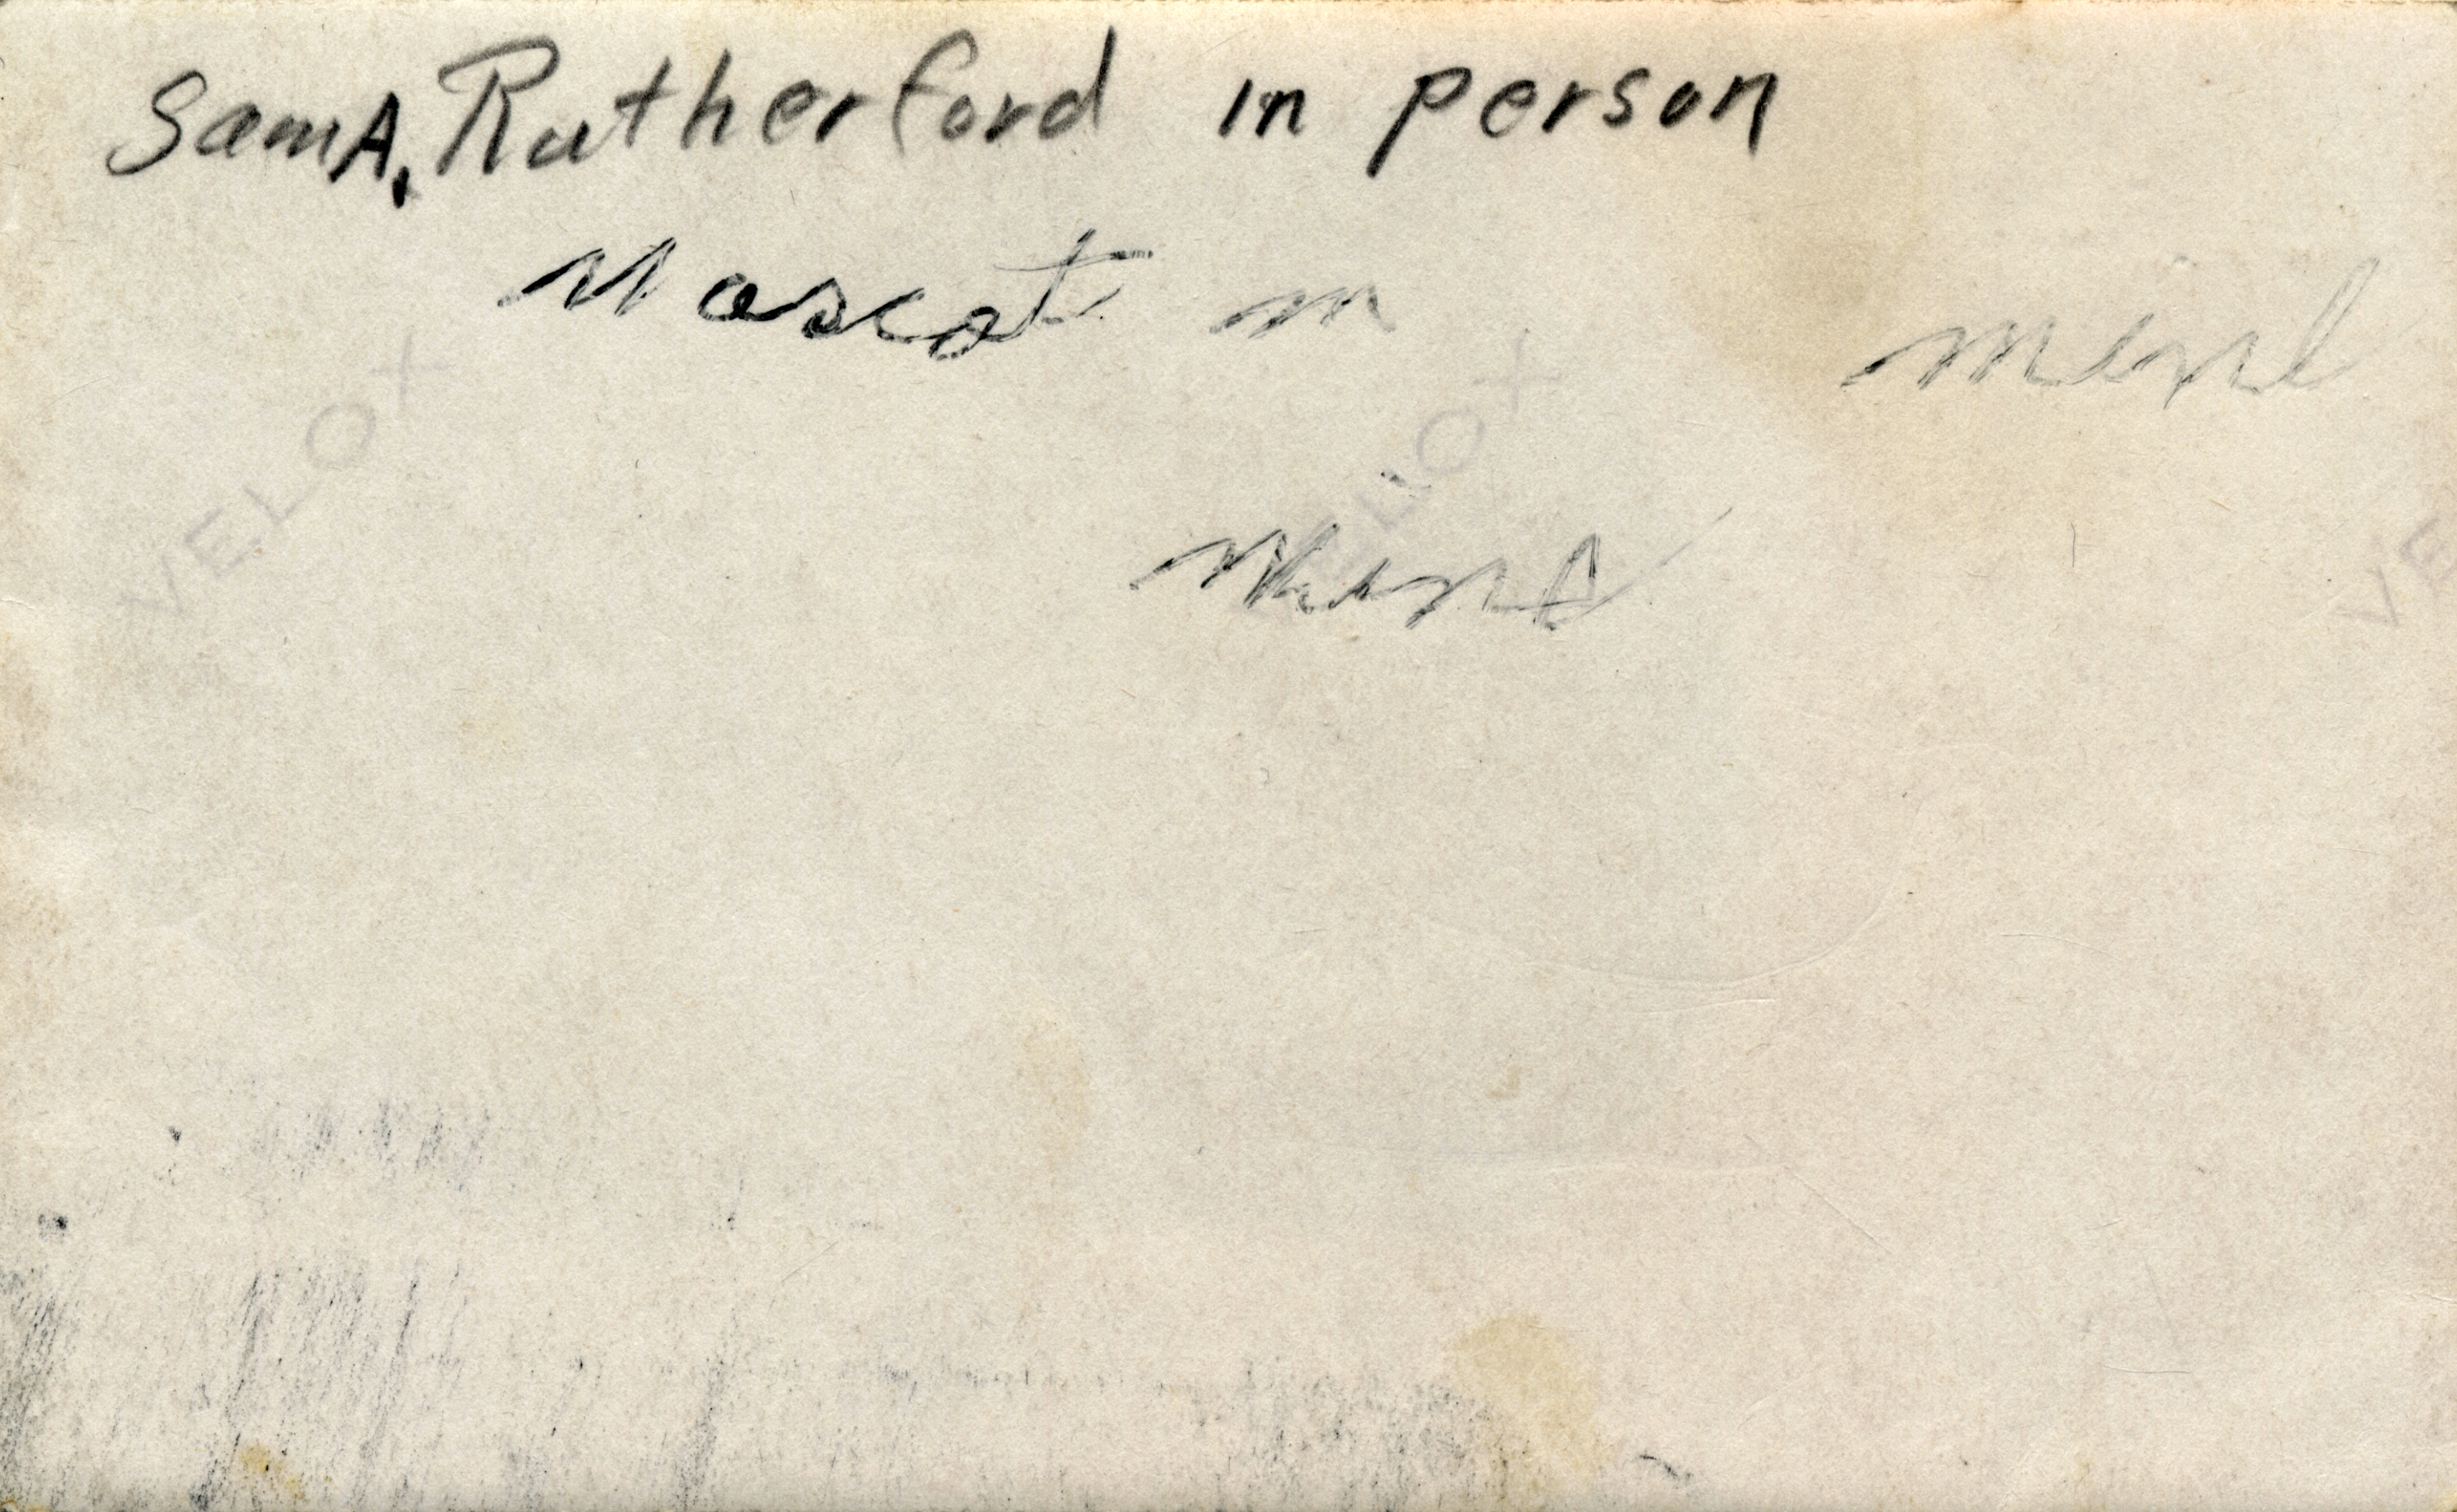 Sam A. Rutherford in person
Mascot m
VELOX
VELOX
VE